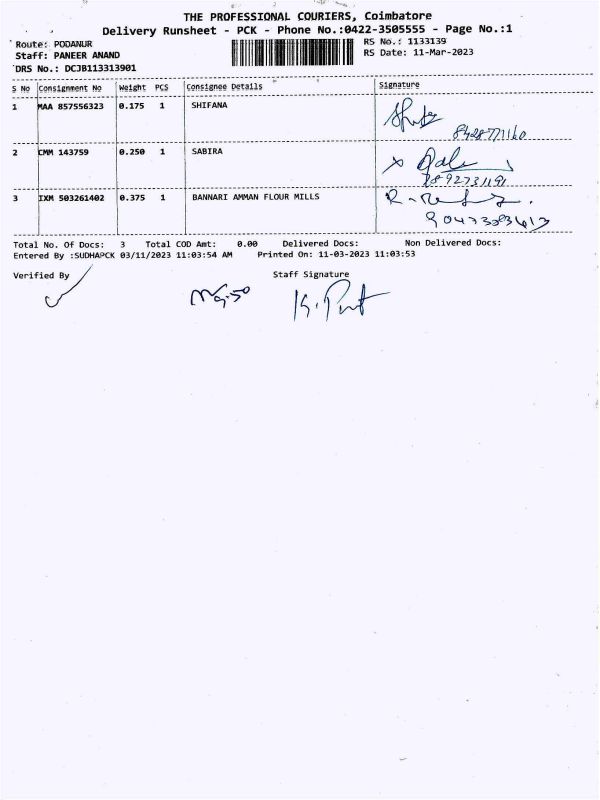 THE PROFESSIONAL COURIERS, Coimbatore
Delivery Runsheet - PCK - Phone No.:0422-3505555 - Page No.:1
Route: PODANUR
RS No.: 1133139
Staff: PANEER ANAND
RS Date: 11-Mar-2023
DRS No.: DCJB113313901
S No Consignment No Weight PCS Consignee Details Signature
1 MAA 857556323 0.175 1 SHIFANA
8428771160
2 CMM 143759 0.250 1 SABIRA
3 IXM 503261402 0.375 1 BANNARI AMMAN FLOUR MILLS
Total No. Of Docs: 3 Total COD Amt: 0.00 Delivered Docs: Non Delivered Docs:
Entered By :SUDHAPCK 03/11/2023 11:03:54 AM Printed On: 11-03-2023 11:03:53
Verified By Staff Signature